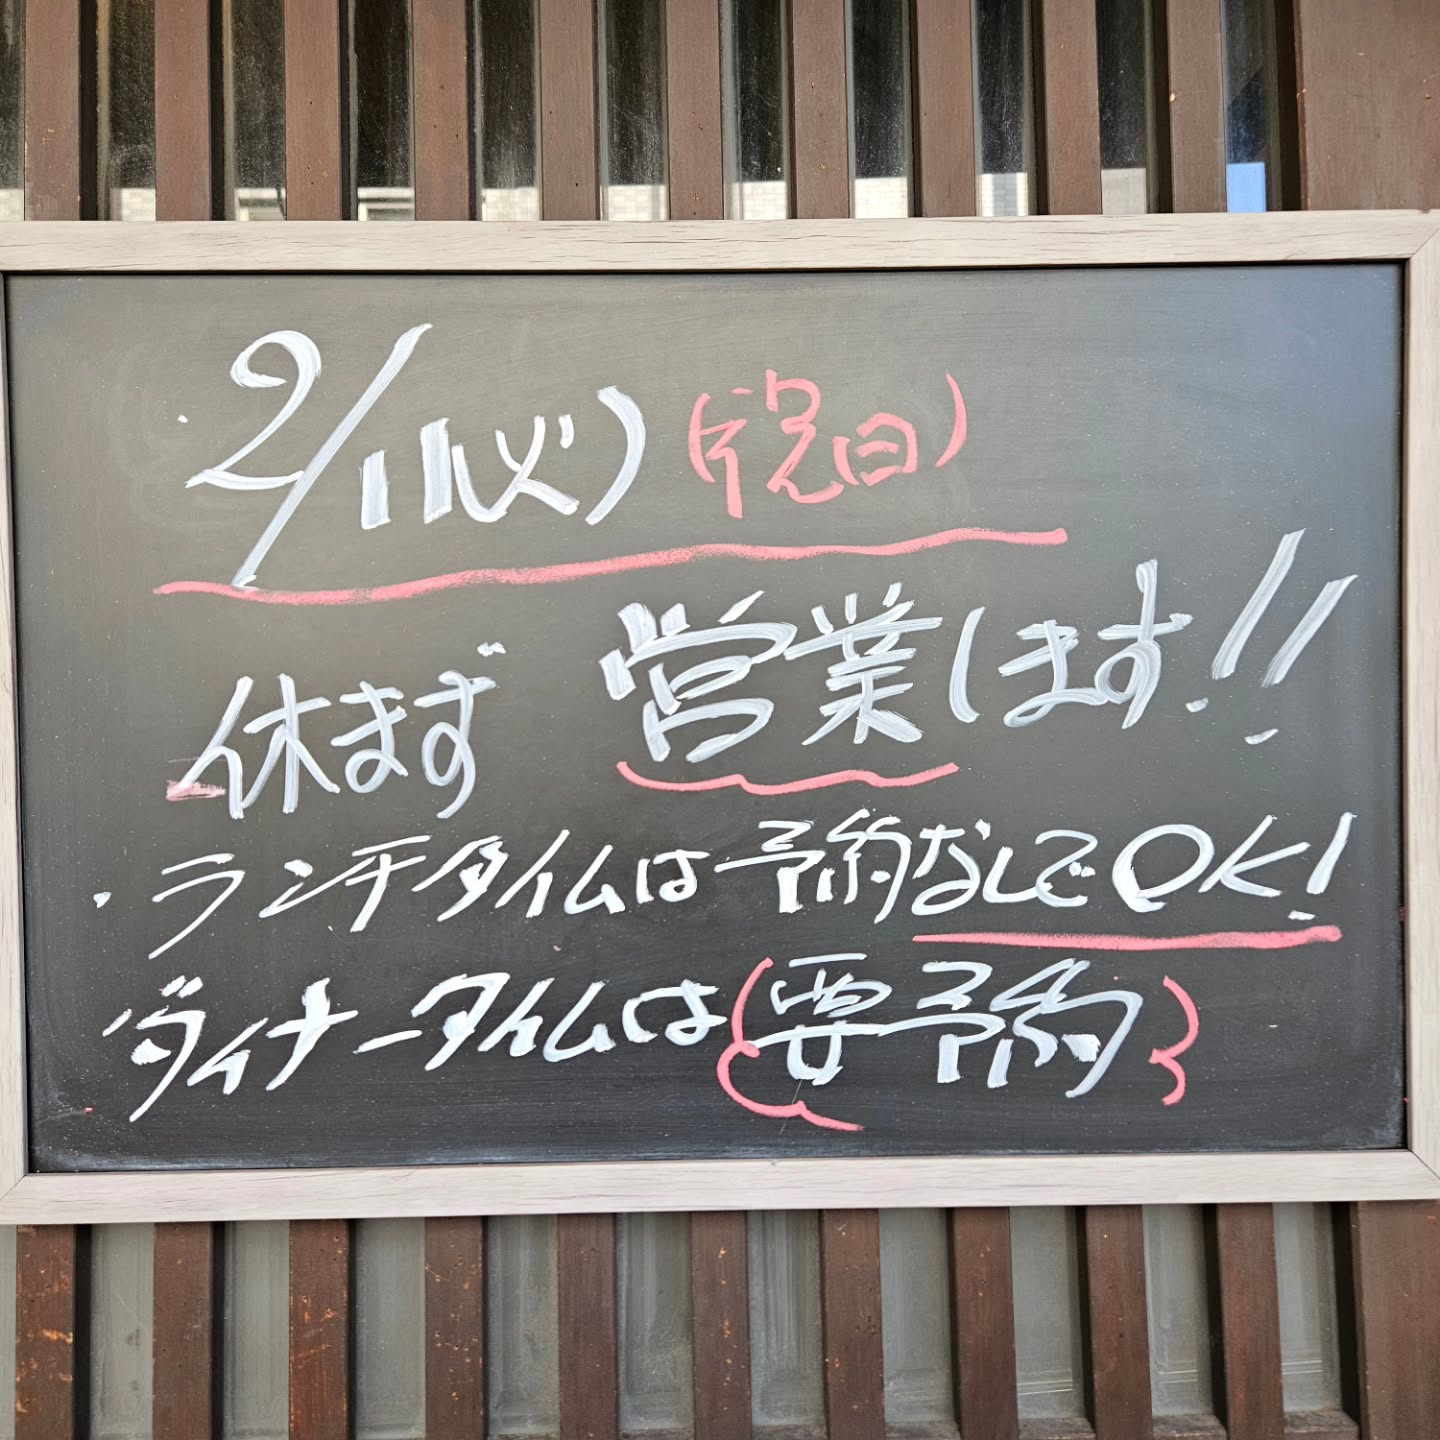 2/11(火)(祝日)
休まず 営業します!!
・ランチタイムは予約なしでOK!
ダイナータイムは(要予約)